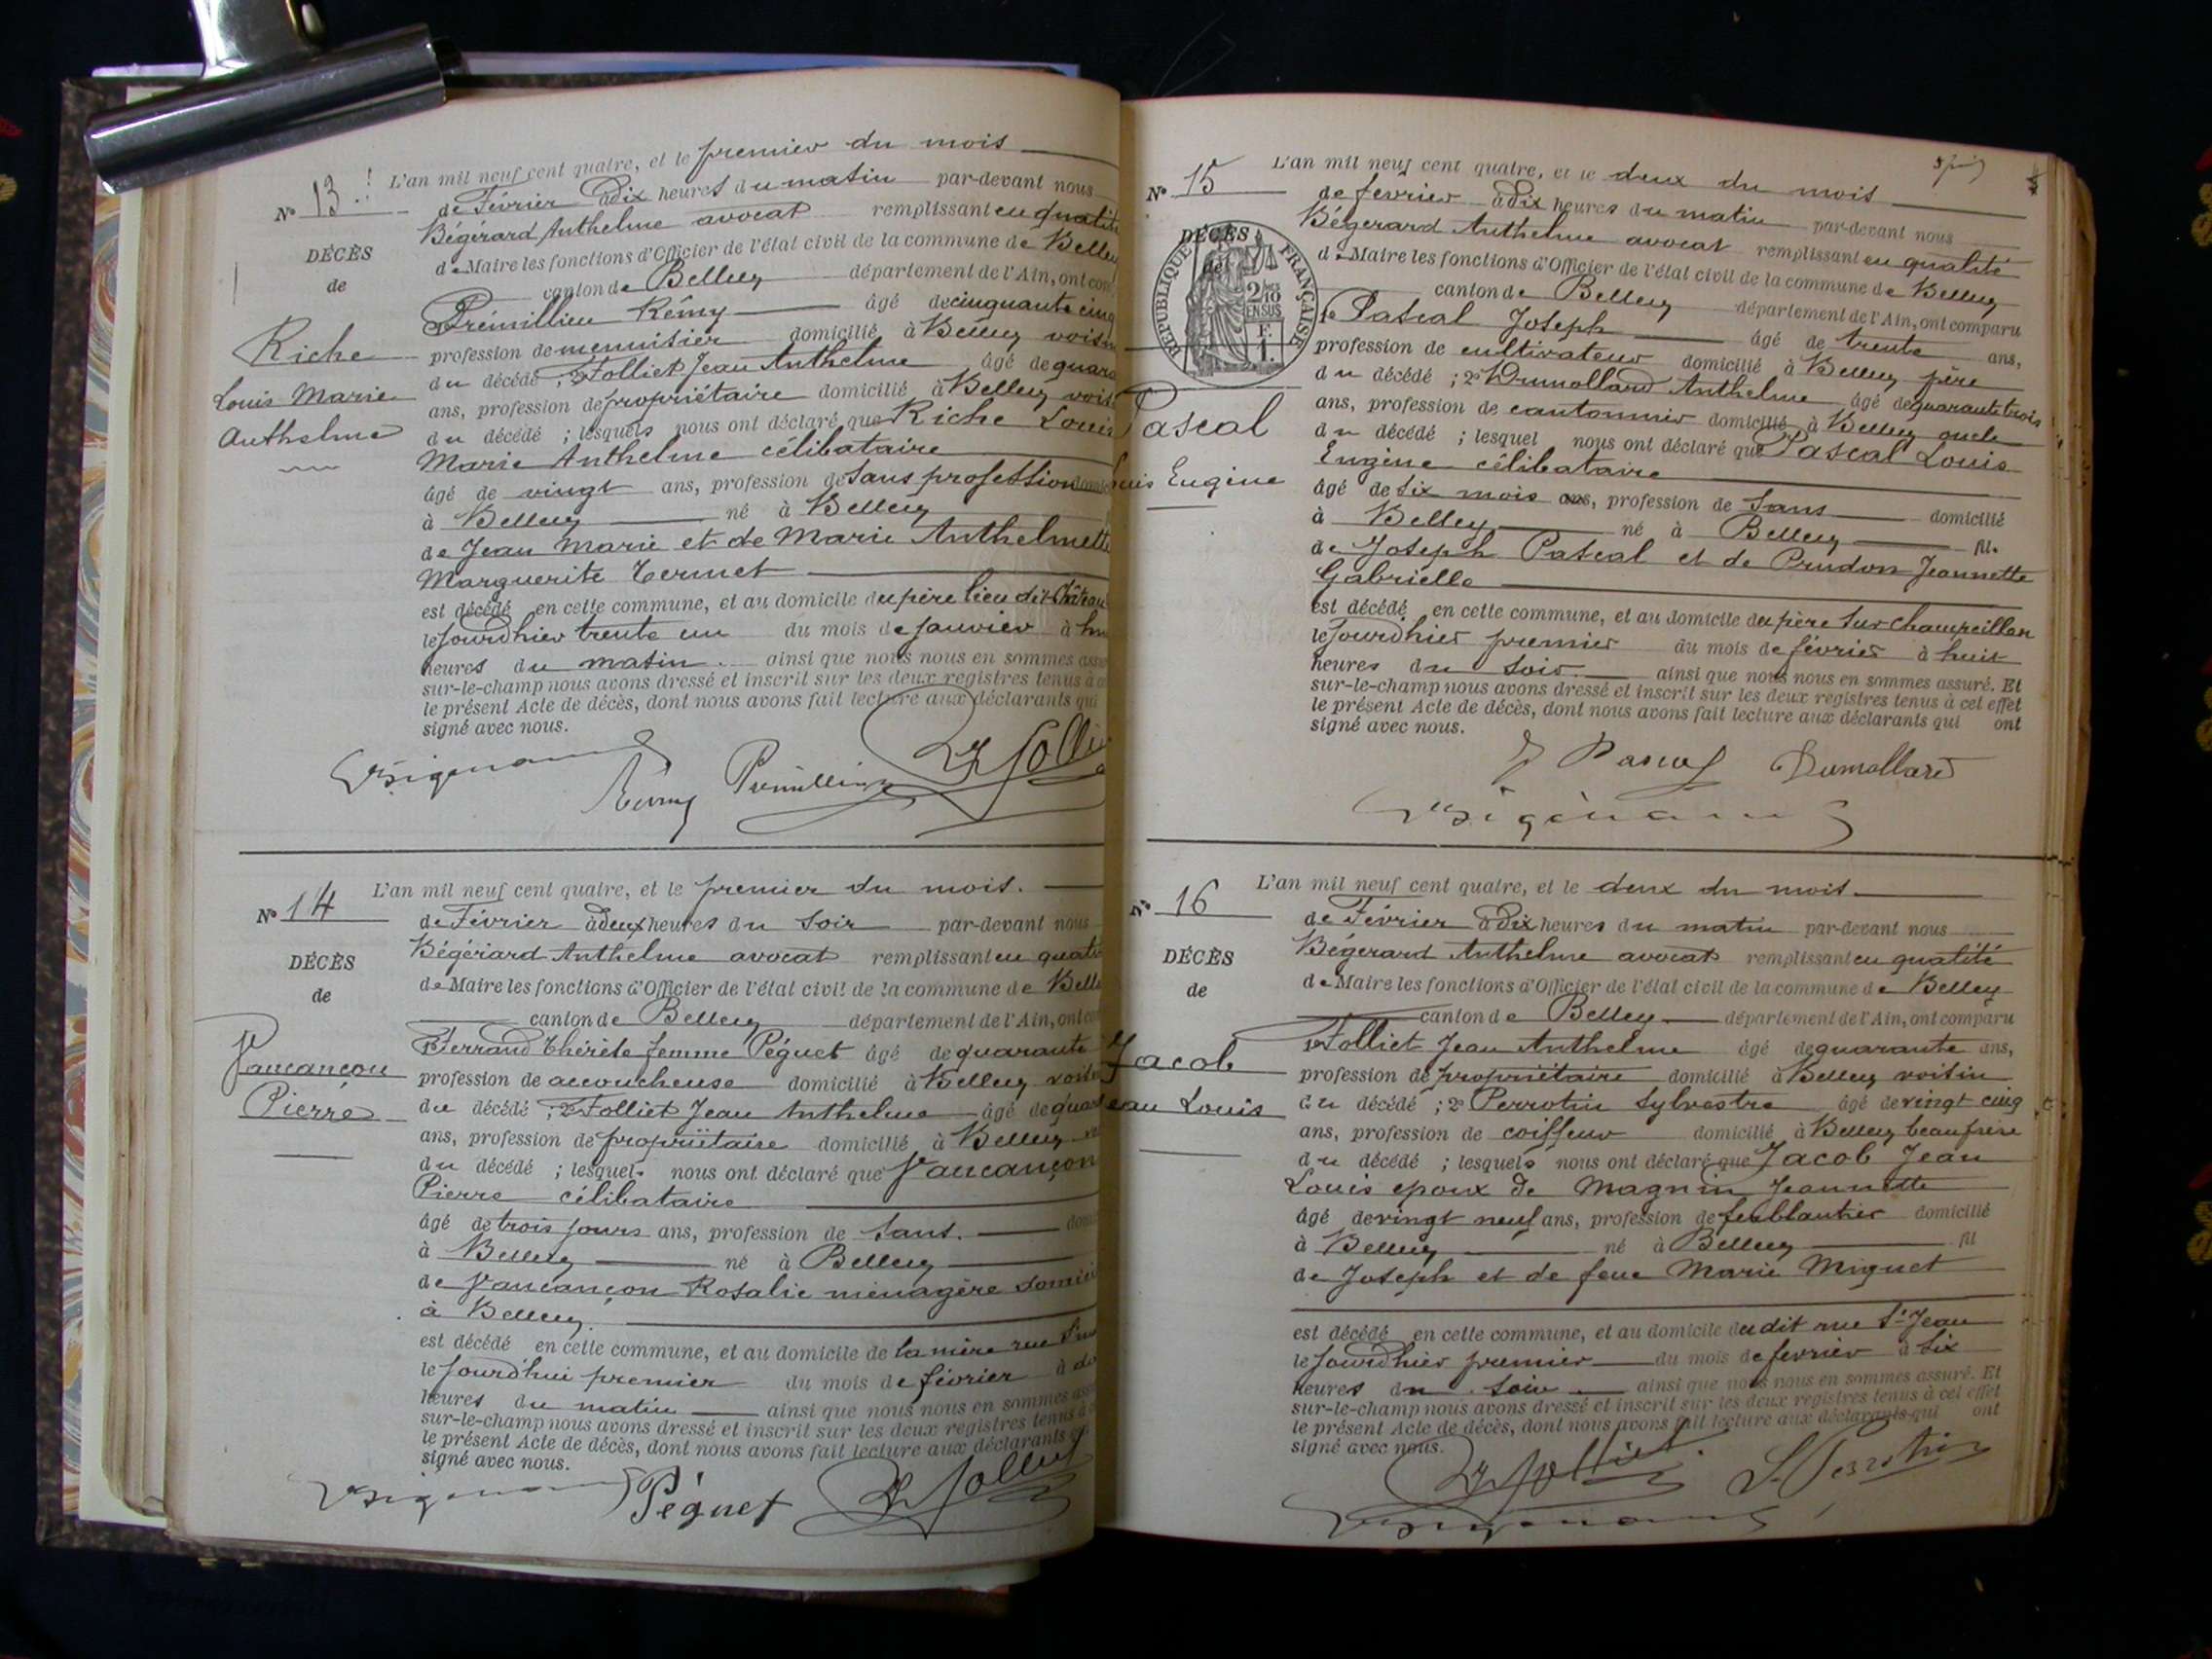 L'an mil neuf cent quatre, et le premier du mois
N° 13
de Février à dix heures du matin par-devant nous
Bégérard Anthelme avocat remplissant en qualité
DÉCÈS
de
de Maire les fonctions d'Officier de l'état civil de la commune de Belley
canton de Belley département de l'Ain, ont com
1° Prémillieu Rémy âgé de cinquante cinq
Riche
Louis Marie
Anthelme
profession de menuisier domicilié à Belley voisin
du décédé ; 2° Folliet Jean Anthelme âgé de quara
ans, profession de propriétaire domicilié à Belley vois
du décédé ; lesquels nous ont déclaré que Riche Louis
Marie Anthelme célibataire
âgé de vingt ans, profession de sans profession domic
à Belley né à Belley
de Jean Marie et de Marie Anthelmette
Marguerite Termet
est décédé en cette commune, et au domicile du père lieu dit Château
le jourd'hier trente un du mois de janvier à hu
heures du matin. ainsi que nous nous en sommes assu
sur-le-champ nous avons dressé et inscrit sur les deux registres tenus à c
le présent Acte de décès, dont nous avons fait lecture aux déclarants qui
signé avec nous.
Rémy Prémillieu
L'an mil neuf cent quatre, et le premier du mois.
N° 14
de Février à deux heures du soir par-devant nous
Bégérard Anthelme avocat remplissant en qualit
DÉCÈS
de
de Maire les fonctions d'Officier de l'état civil de la commune de Belle
canton de Belley département de l'Ain, ont co
1° Ferrand Thérèse femme Péguet âgé de quarante
Vaucançon
Pierre
profession de accoucheuse domicilié à Belley voisi
du décédé ; 2° Folliet Jean Anthelme âgé de quar
ans, profession de propriétaire domicilié à Belley
du décédé ; lesquels nous ont déclaré que Vaucançon
Pierre célibataire
âgé de trois jours ans, profession de sans.
à Belley né à Belley
de Vaucançon Rosalie ménagère domici
à Belley.
est décédé en cette commune, et au domicile de la mère rue
le jourd'hui premier du mois de février à
heures du matin ainsi que nous nous en sommes
sur-le-champ nous avons dressé et inscrit sur les deux registres tenus à
le présent Acte de décès, dont nous avons fait lecture aux déclarants
signé avec nous.
Péguet
L'an mil neuf cent quatre, et le deux du mois
N° 15
de février à dix heures du matin par-devant nous
Bégerard Anthelme avocat remplissant en qualité
DÉCÈS
de
RÉPUBLIQUE FRANÇAISE
2/10 EN SUS
de Maire les fonctions d'Officier de l'état civil de la commune de Belley
canton de Belley département de l'Ain, ont comparu
1° Pascal Joseph âgé de trente ans,
profession de cultivateur domicilié à Belley père
du décédé ; 2° Dumollard Anthelme âgé de quarante trois
Pascal
Louis Eugène
ans, profession de cantonnier domicilié à Belley oncle
du décédé ; lesquel nous ont déclaré que Pascal Louis
Eugène célibataire
âgé de six mois ans, profession de sans domicilié
à Belley né à Belley fil.
de Joseph Pascal et de Prudon Jeannette
Gabrielle
est décédé en cette commune, et au domicile du père sur Champeillon
le jourd'hier premier du mois de février à huit
heures du soir. ainsi que nous nous en sommes assuré. Et
sur-le-champ nous avons dressé et inscrit sur les deux registres tenus à cet effet
le présent Acte de décès, dont nous avons fait lecture aux déclarants qui ont
signé avec nous.
J Pascal Dumollard
L'an mil neuf cent quatre, et le deux du mois.
N° 16
de Février à dix heures du matin par-devant nous
Bégerard Anthelme avocat remplissant en qualité
DÉCÈS
de
de Maire les fonctions d'Officier de l'état civil de la commune de Belley
canton de Belley département de l'Ain, ont comparu
1° Folliet Jean Anthelme âgé de quarante ans,
Jacob
Jean Louis
profession de propriétaire domicilié à Belley voisin
du décédé ; 2° Perrotin Sylvestre âgé de vingt cinq
ans, profession de coiffeur domicilié à Belley beau frère
du décédé ; lesquels nous ont déclaré que Jacob Jean
Louis époux de Magnin Jeannette
âgé de vingt neuf ans, profession de ferblantier domicilié
à Belley né à Belley fil
de Joseph et de feue Marie Miguet
est décédé en cette commune, et au domicile du dit rue St Jean
le jourd'hier premier du mois de fevrier à six
heures du soir. ainsi que nous nous en sommes assuré. Et
sur-le-champ nous avons dressé et inscrit sur les deux registres tenus à cet effet
le présent Acte de décès, dont nous avons fait lecture aux déclarants qui ont
signé avec nous.
S. Perrotin